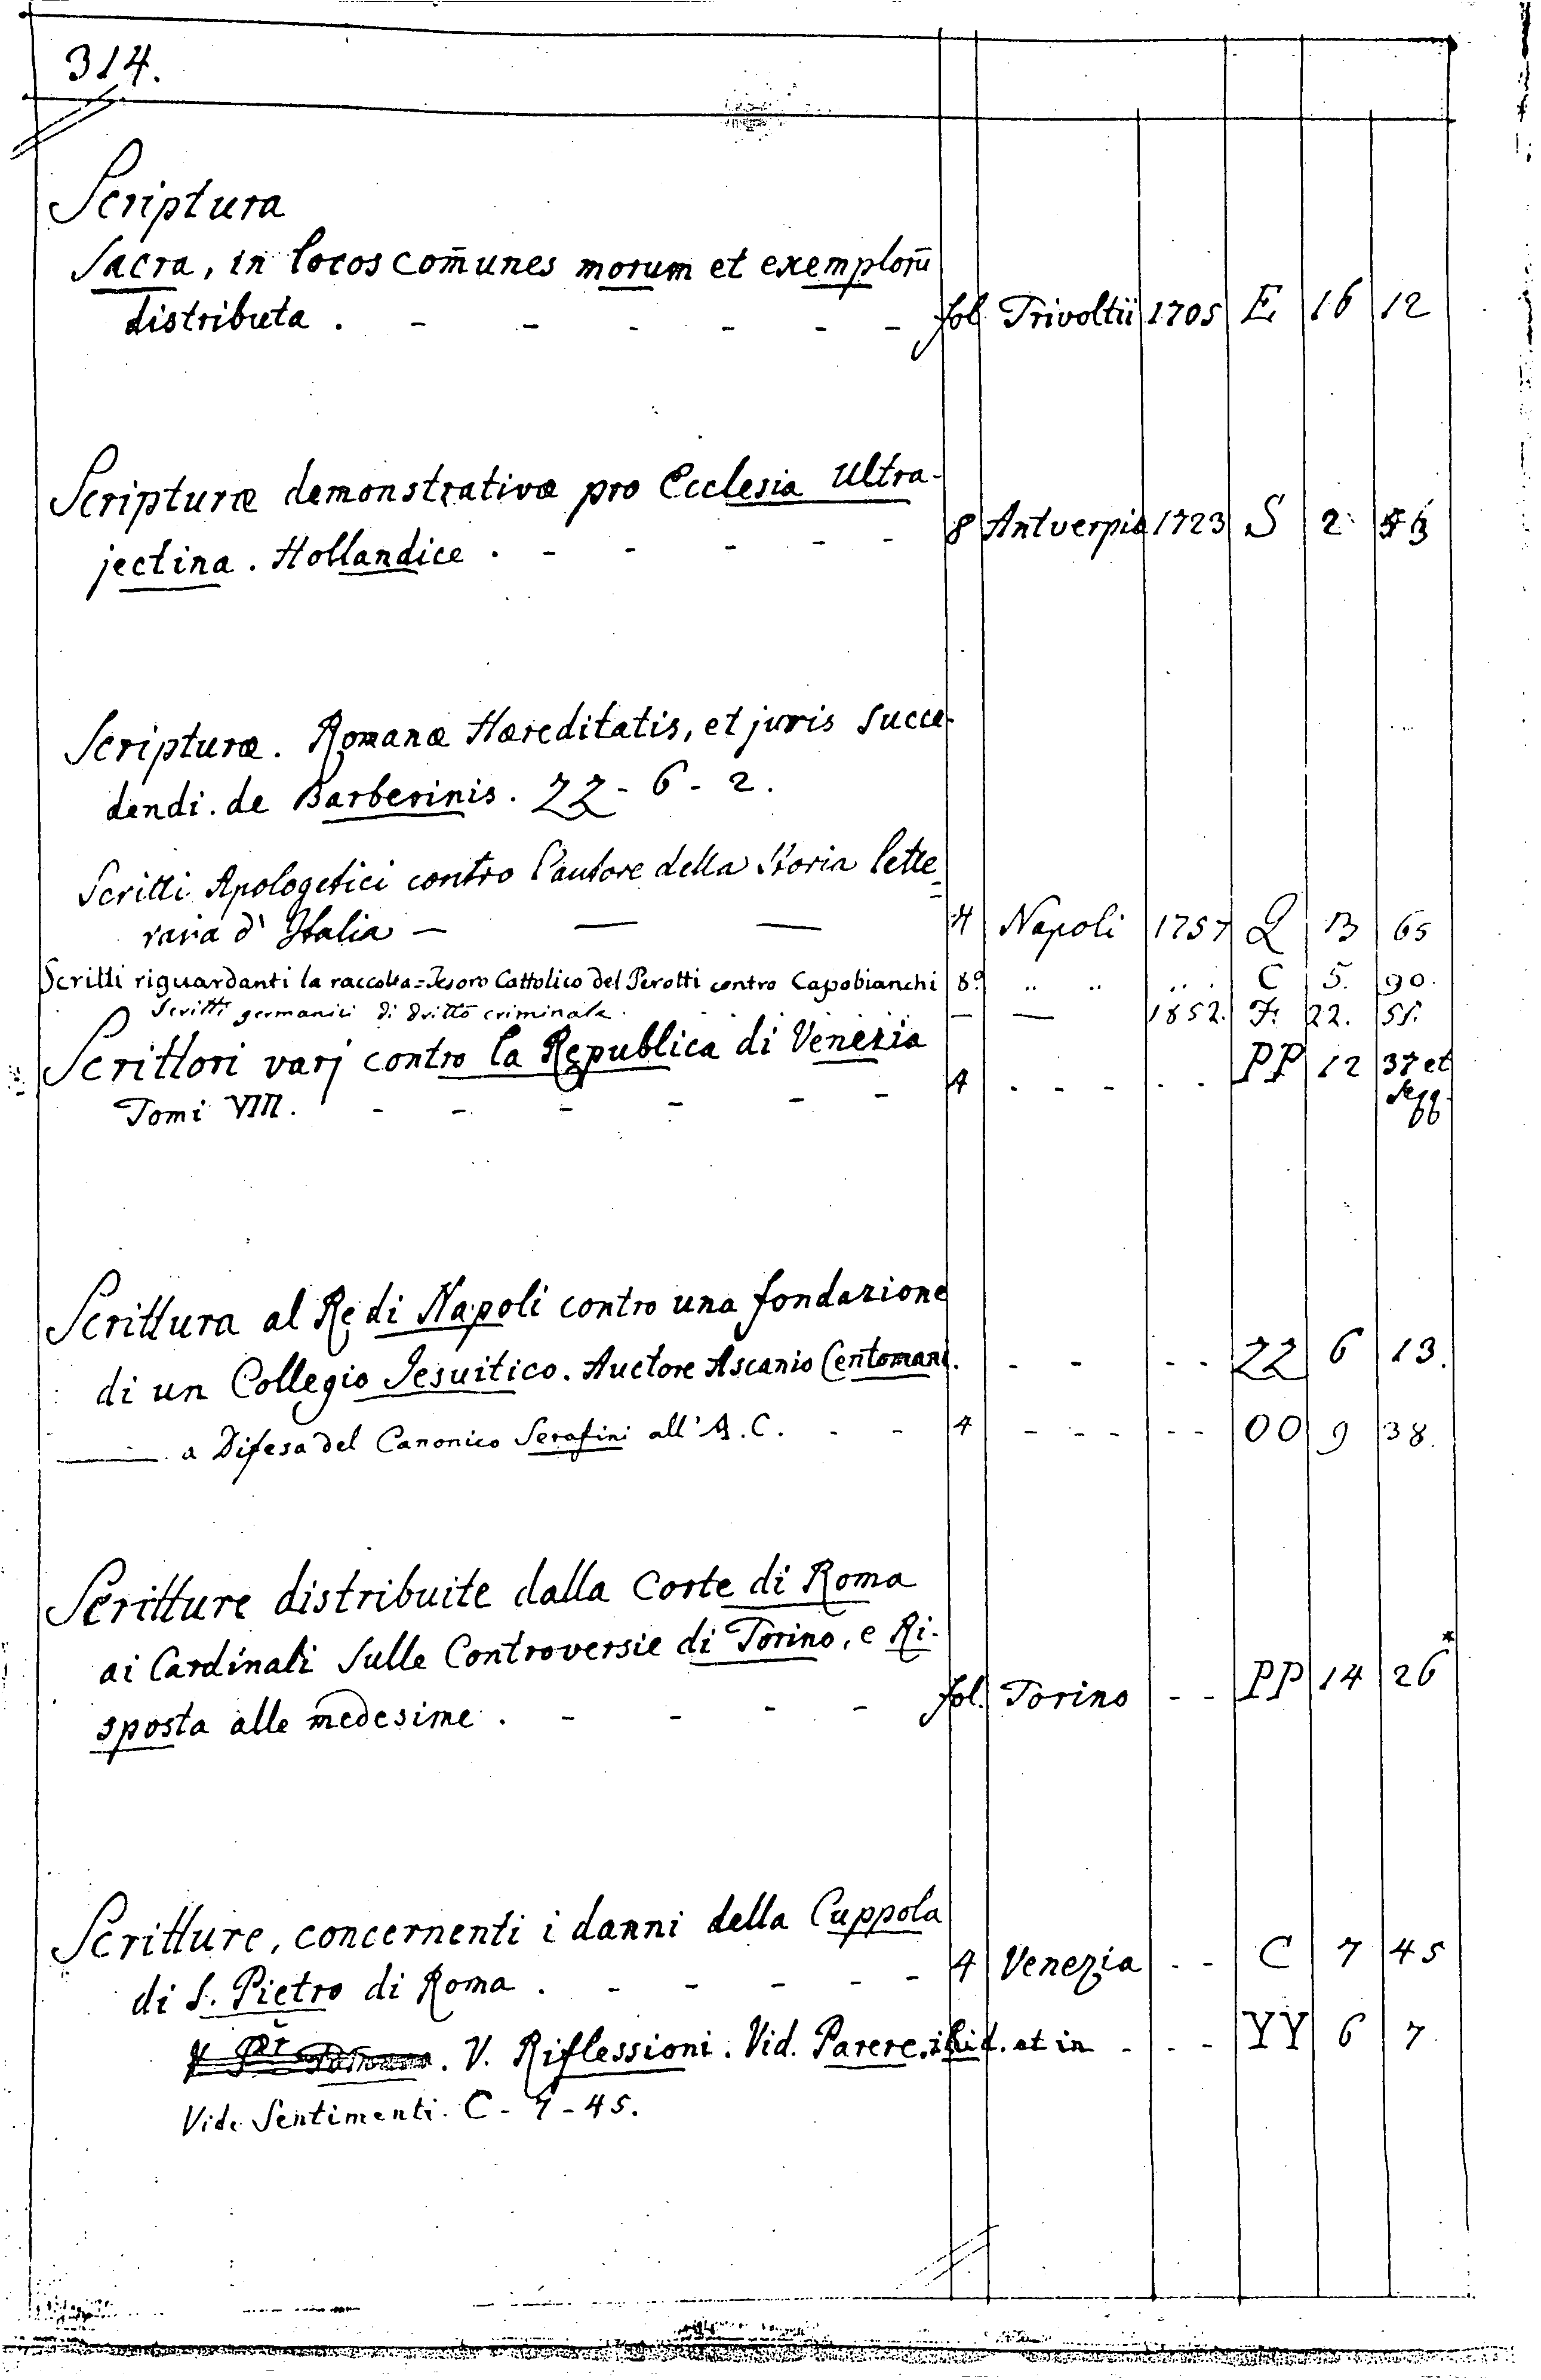 314.
Scriptura
Sacra, in locos com̄unes morum et exemplorū
distributa . - - - - - - fol. Trivoltii 1705 E 16 12
Scripturæ demonstrativæ pro Ecclesia Ultra-
jectina . Hollandice . - - - - - 8 Antverpiæ 1723 S 2
Scripturæ . Romanæ Hæreditatis, et juris succe-
dendi . de Barberinis . ZZ - 6 - 2 .
Scritti Apologetici contro l'autore della Storia lette
raria d' Italia — — — 4 Napoli 1757 Q 13 65
Scritti riguardanti la raccolta = Tesoro Cattolico del Perotti contro Capobianchi 8º .. .. .. . C 5. 90.
Scritti germanici di dritto criminale . — — 1852. F. 22. 51.
Scrittori varj contro la Republica di Venezia
Tomi VIII . - - - - - - 4 . - - - . . PP 12 37 et seqq.
Scrittura al Re di Napoli contro una fondazione
di un Collegio Jesuitico . Auctore Ascanio Centomani . - - - - ZZ 6 13.
—— a Difesa del Canonico Serafini all' A. C. - - 4 - - - - - OO 9 38.
Scritture distribuite dalla Corte di Roma
ai Cardinali sulle Controversie di Torino, e Ri-
sposta alle medesime . - - - - fol. Torino - - PP 14 26*
Scritture, concernenti i danni della Cuppola
di S. Pietro di Roma . - - - - - 4 Venezia - - C 7 45
V. Riflessioni . Vid. Parere. ibid. et in - - - YY 6 7
Vide Sentimenti . C - 7 - 45.